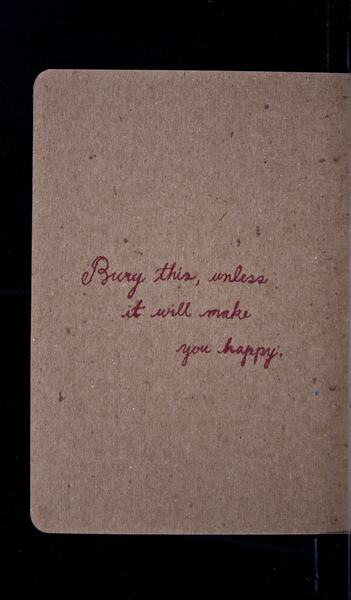 Bury this, unless
it will make
you happy.